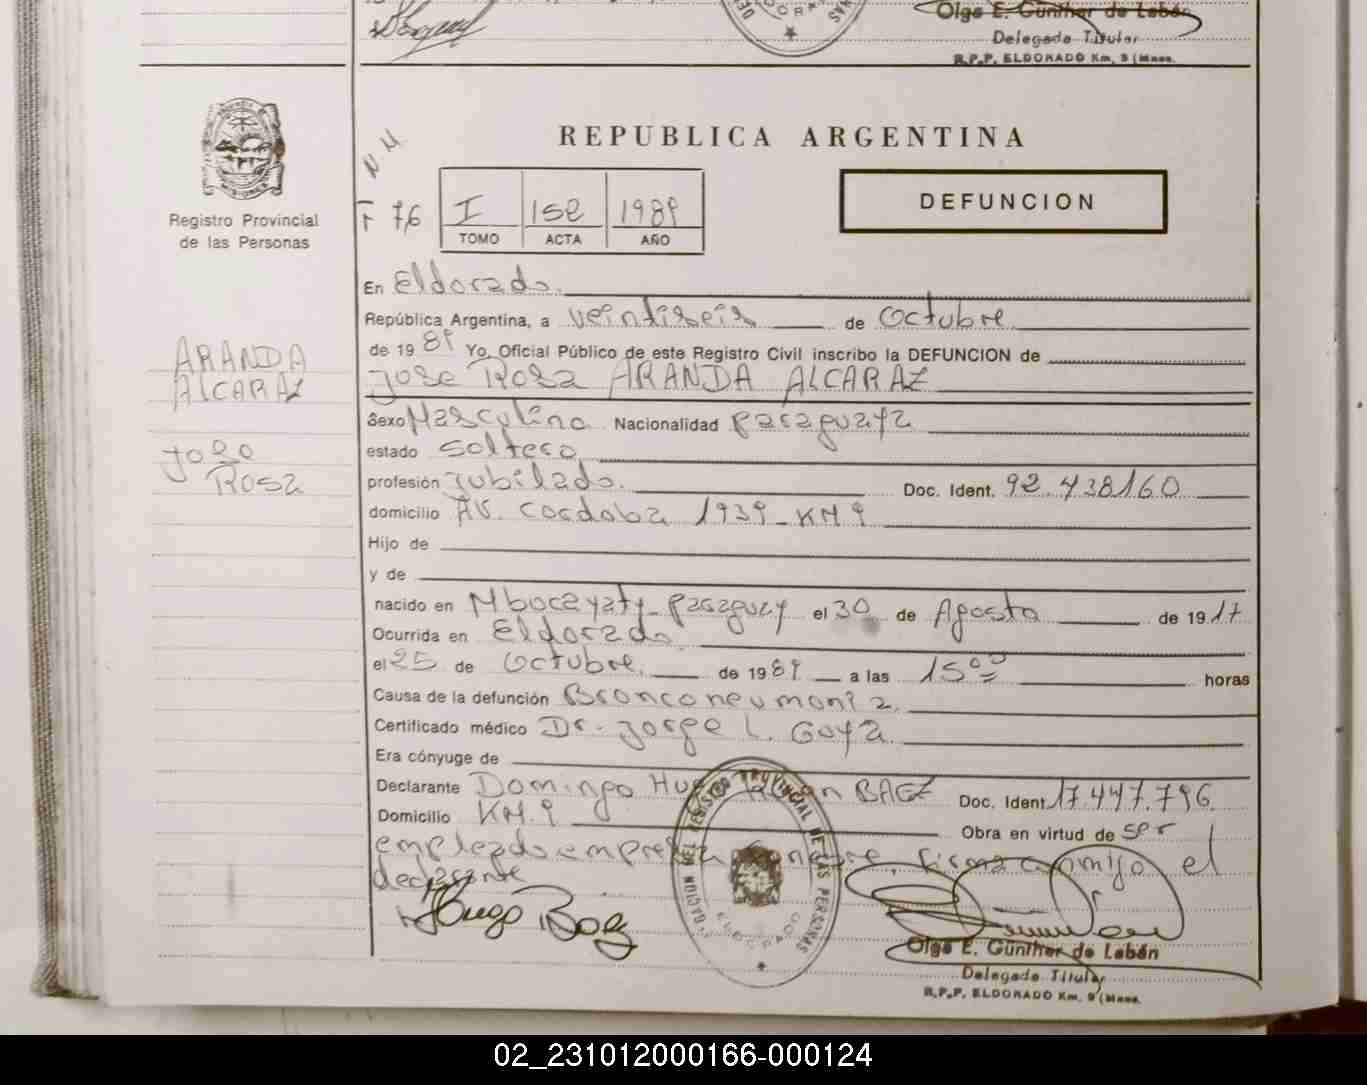 Olga E. Günther de Labán
Delegada Titular
R.P.P. ELDORADO Km. 9 (Mnes.
REPUBLICA ARGENTINA
DEFUNCION
Registro Provincial
de las Personas
F 76
I 152 1989
TOMO ACTA AÑO
En Eldorado
República Argentina, a veintiseis de Octubre
de 1989 Yo, Oficial Público de este Registro Civil inscribo la DEFUNCION de
Jose Rosa ARANDA ALCARAZ
ARANDA
ALCARAZ
Jose
Rosa
Sexo Masculino Nacionalidad paraguaya
estado soltero
profesión jubilado. Doc. Ident. 92.438160
domicilio AV. Cordoba 1939 - KM 9
Hijo de
y de
nacido en Mbocayaty - paraguay el 30 de Agosto de 1917
Ocurrida en Eldorado
el 25 de Octubre. de 1989 a las 15°° horas
Causa de la defunción Bronconeumonia.
Certificado médico Dr. Jorge L. Goya
Era cónyuge de
Declarante Domingo Hugo BAEZ Doc. Ident. 17.447.796
Domicilio KM. 9 Obra en virtud de ser
empleado empresa funebre, firma conmigo el
declarante
Hugo Baez
REGISTRO PROVINCIAL DE LAS PERSONAS
ELDORADO
Olga E. Günther de Labán
Delegada Titular
R.P.P. ELDORADO Km. 9 (Mnes.
02_231012000166-000124